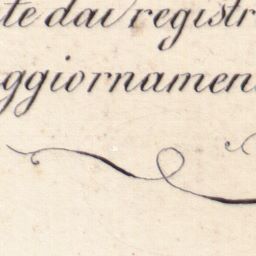 te dai registr
ggiornamen